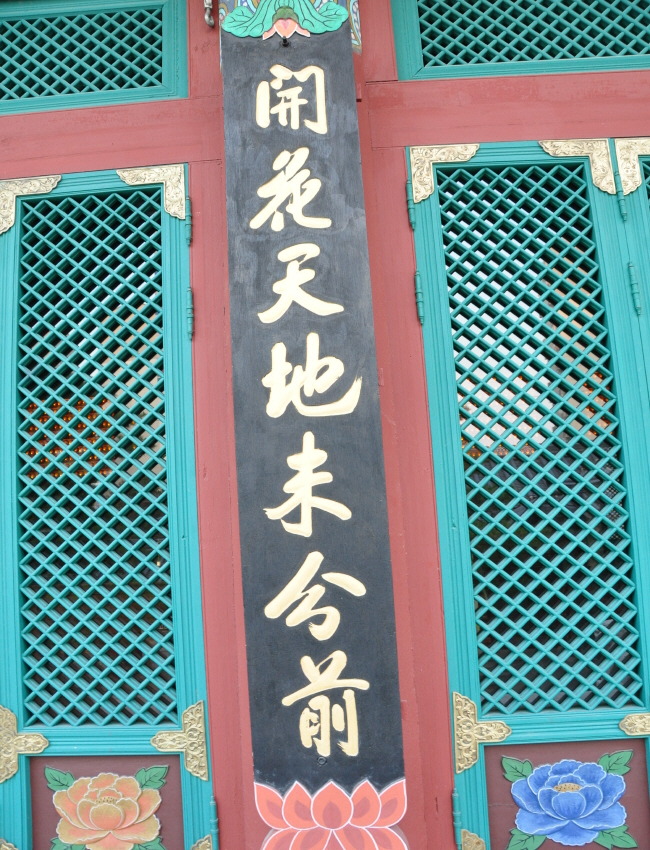 開花天地未分前